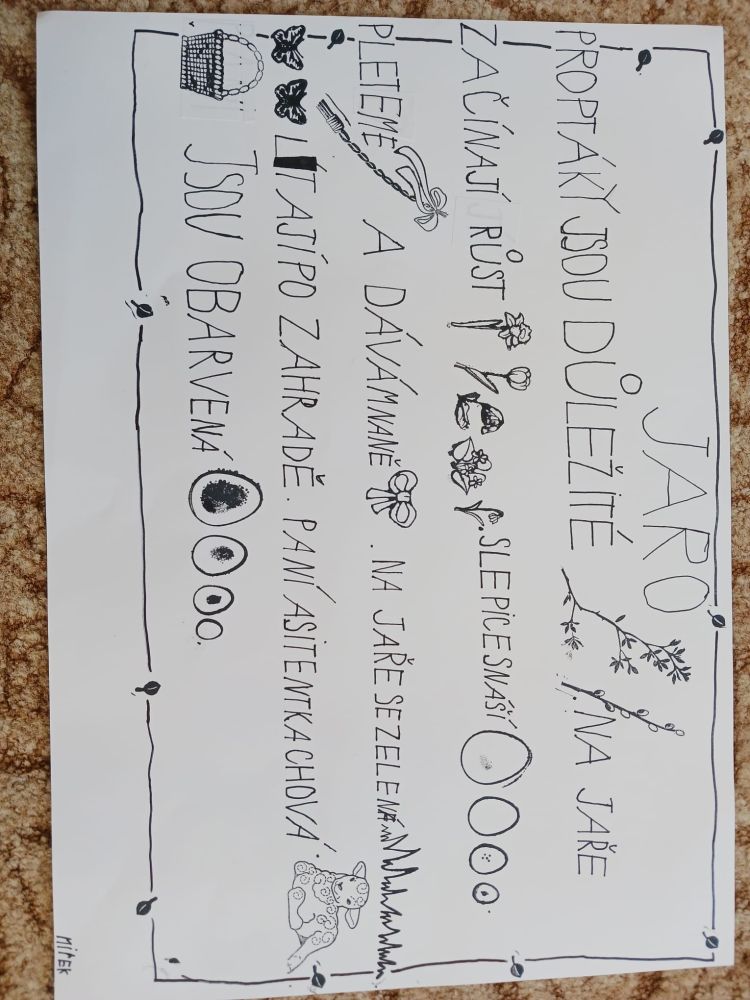 JARO
PROPTÁKY JSOU DŮLEŽITÉ . NA JAŘE
ZAČÍNAJÍ RŮST . SLEPICE SNÁŠÍ .
PLETEME A DÁVÁM NANĚ . NA JAŘE SE ZELENÁ
LÍTAJÍ PO ZAHRADĚ . PANÍ ASITENTKA CHOVÁ .
JSOU OBARVENÁ .
MÍŤEK